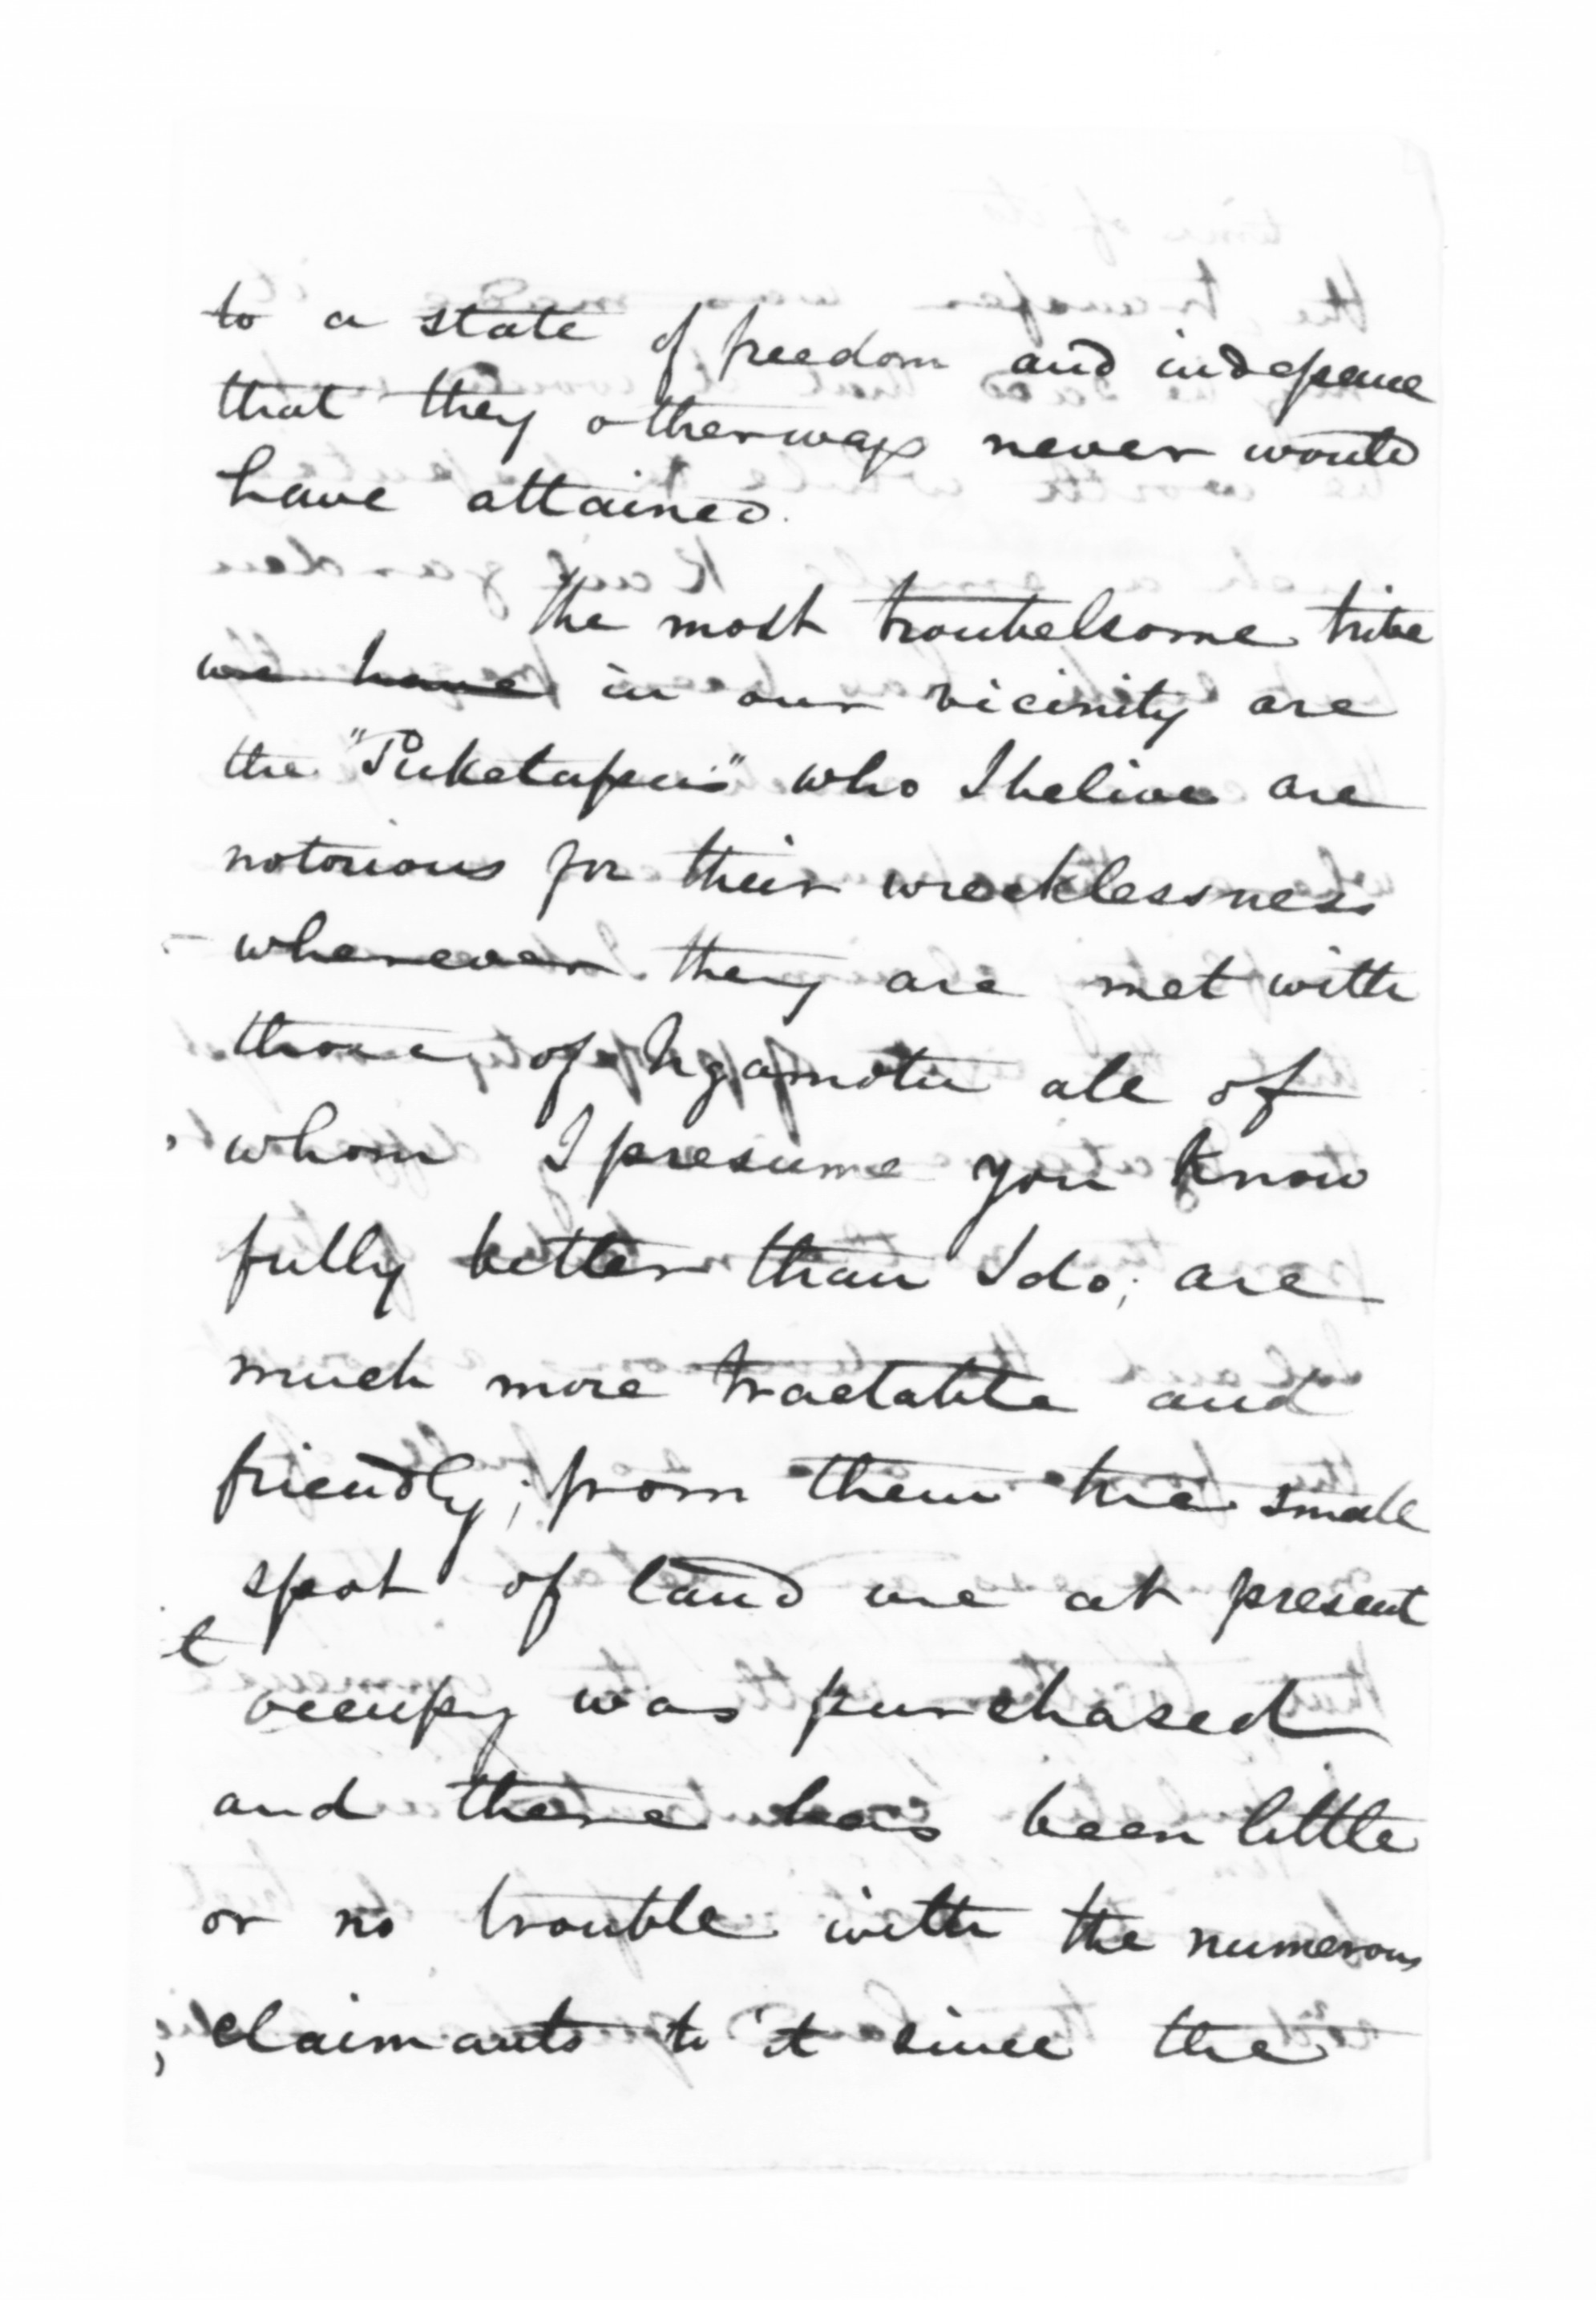 to a state of freedom and indepence
that they otherways never would
have attained.
The most troubelsome tribe
we have in our vicinity are
the "Puketapu's" who I belive are
notorious for their wrecklessness
wherever they are met with
those of Ngamotu all of
whom I presume you know
fully better than I do; are
much more tractable and
friendly; from them the small
spot of land we at present
occupy was purchased
and there has been little
or no trouble with the numerous
claimants to it since the